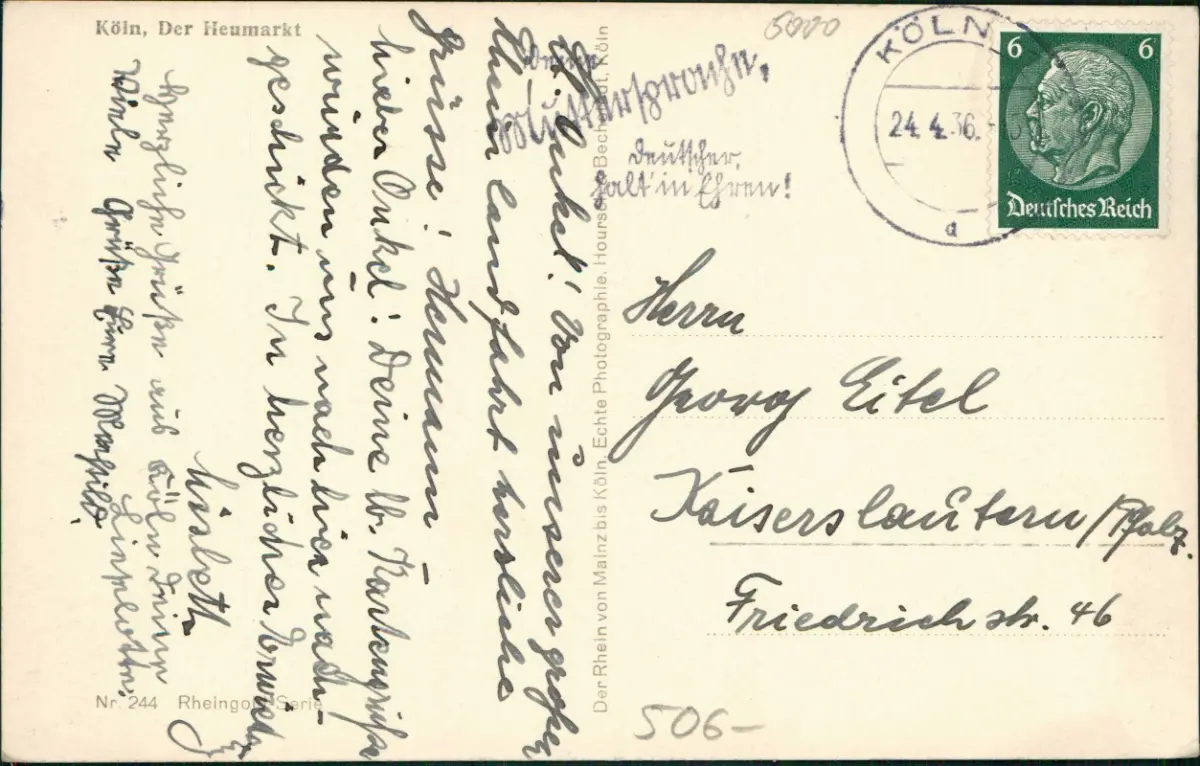 Köln, Der Heumarkt
5000
KÖLN
24.4.36.
a
6 6
Deutsches Reich
Deine
Muttersprache,
Deutscher,
halt' in Ehren!
Lb. Onkel! Von unserer großen
Rheinlandfahrt herzliche
Grüsse! Hermann –
Lieber Onkel! Deine lb. Kartengrüße
wurden uns nach hier nach-
geschickt. In herzlicher
Lisbeth
Herzliche Grüße aus Köln
Liselotte.
Viele Grüße Eure Mathild.
Der Rhein von Mainz bis Köln. Echte Photographie. Hoursch & Bechstedt, Köln
Herrn
Georg Eitel
Kaiserslautern/Pfalz.
Friedrichstr. 46
Nr. 244 Rheingold-Serie
506–